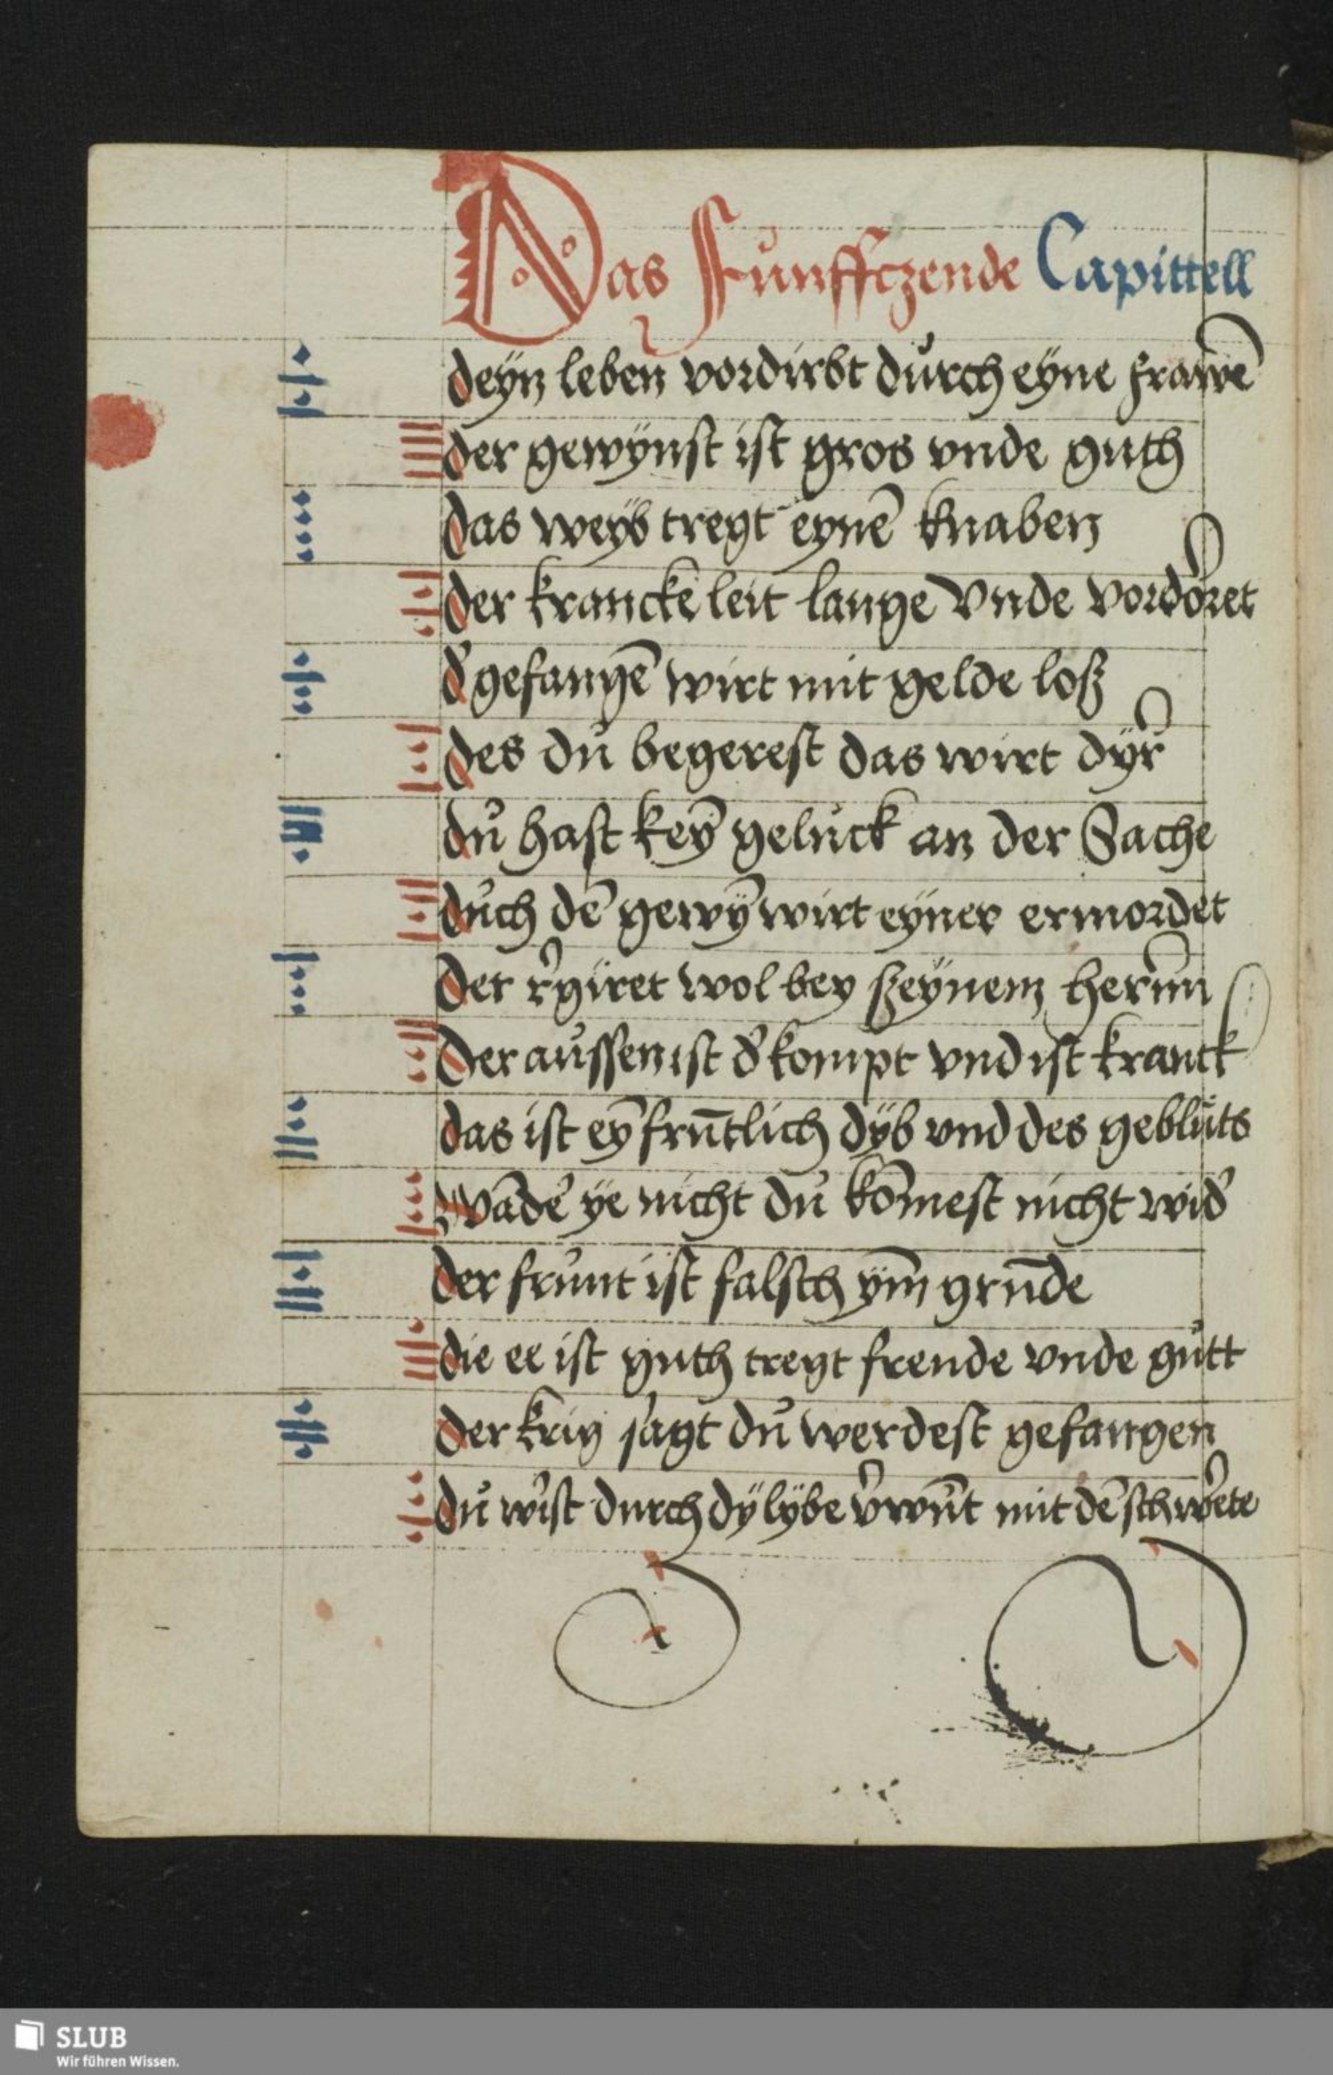 Das Funffczende Capittell
deyn leben vordirbt durch eyne frawē
der gewÿnst ist gros vnde guth
das weyb tregt eynē knaben
der krancke leit lange vnde vordoret
d' gefangē wirt mit gelde loß
des dů begerest das wirt dÿr
dů hast keȳ geluck an der Sache
důch dē gewȳ wirt eyner ermordet
Der r'giret wol bey szeynem herñ
Der aůssen ist d' kompt vnd ist kranck
das ist eȳ frūtlich dÿb vnd des geblůts
wādē ye nicht dů kōmest nicht wid'
der frůnt ist falsch ym̄ grūde
die ee ist guth tregt frende vnde gůtt
der krig sagt dů werdest gefangen
dů wist durch dÿ lÿbe v'wūt mit dē schwete
SLUB
Wir führen Wissen.